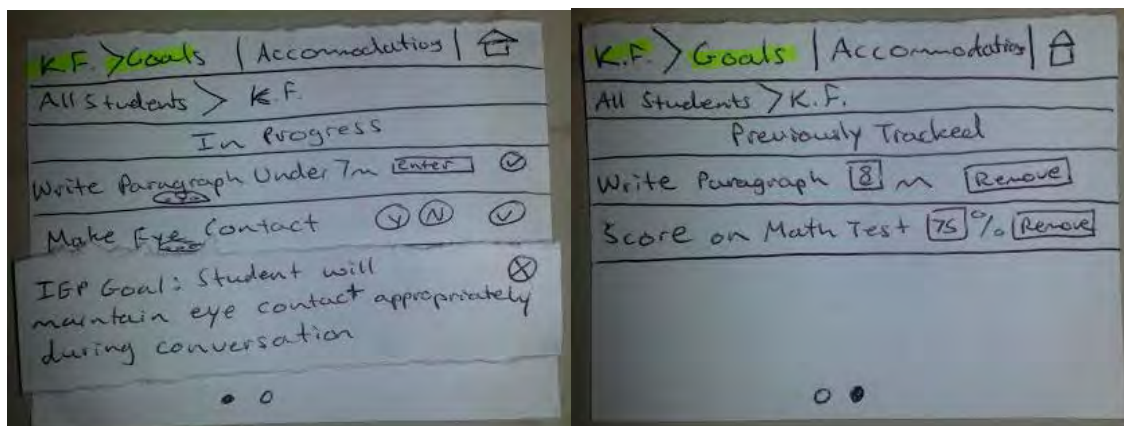 K.F. > Goals | Accommodation |
All Students > K.F.
In Progress
Write Paragraph Under 7m Enter
Make Eye Contact Y N
IEP Goal: Student will
maintain eye contact appropriately
during conversation
K.F. > Goals | Accommodation |
All Students > K.F.
Previously Tracked
Write Paragraph 8 m Remove
Score on Math Test 75 % Remove